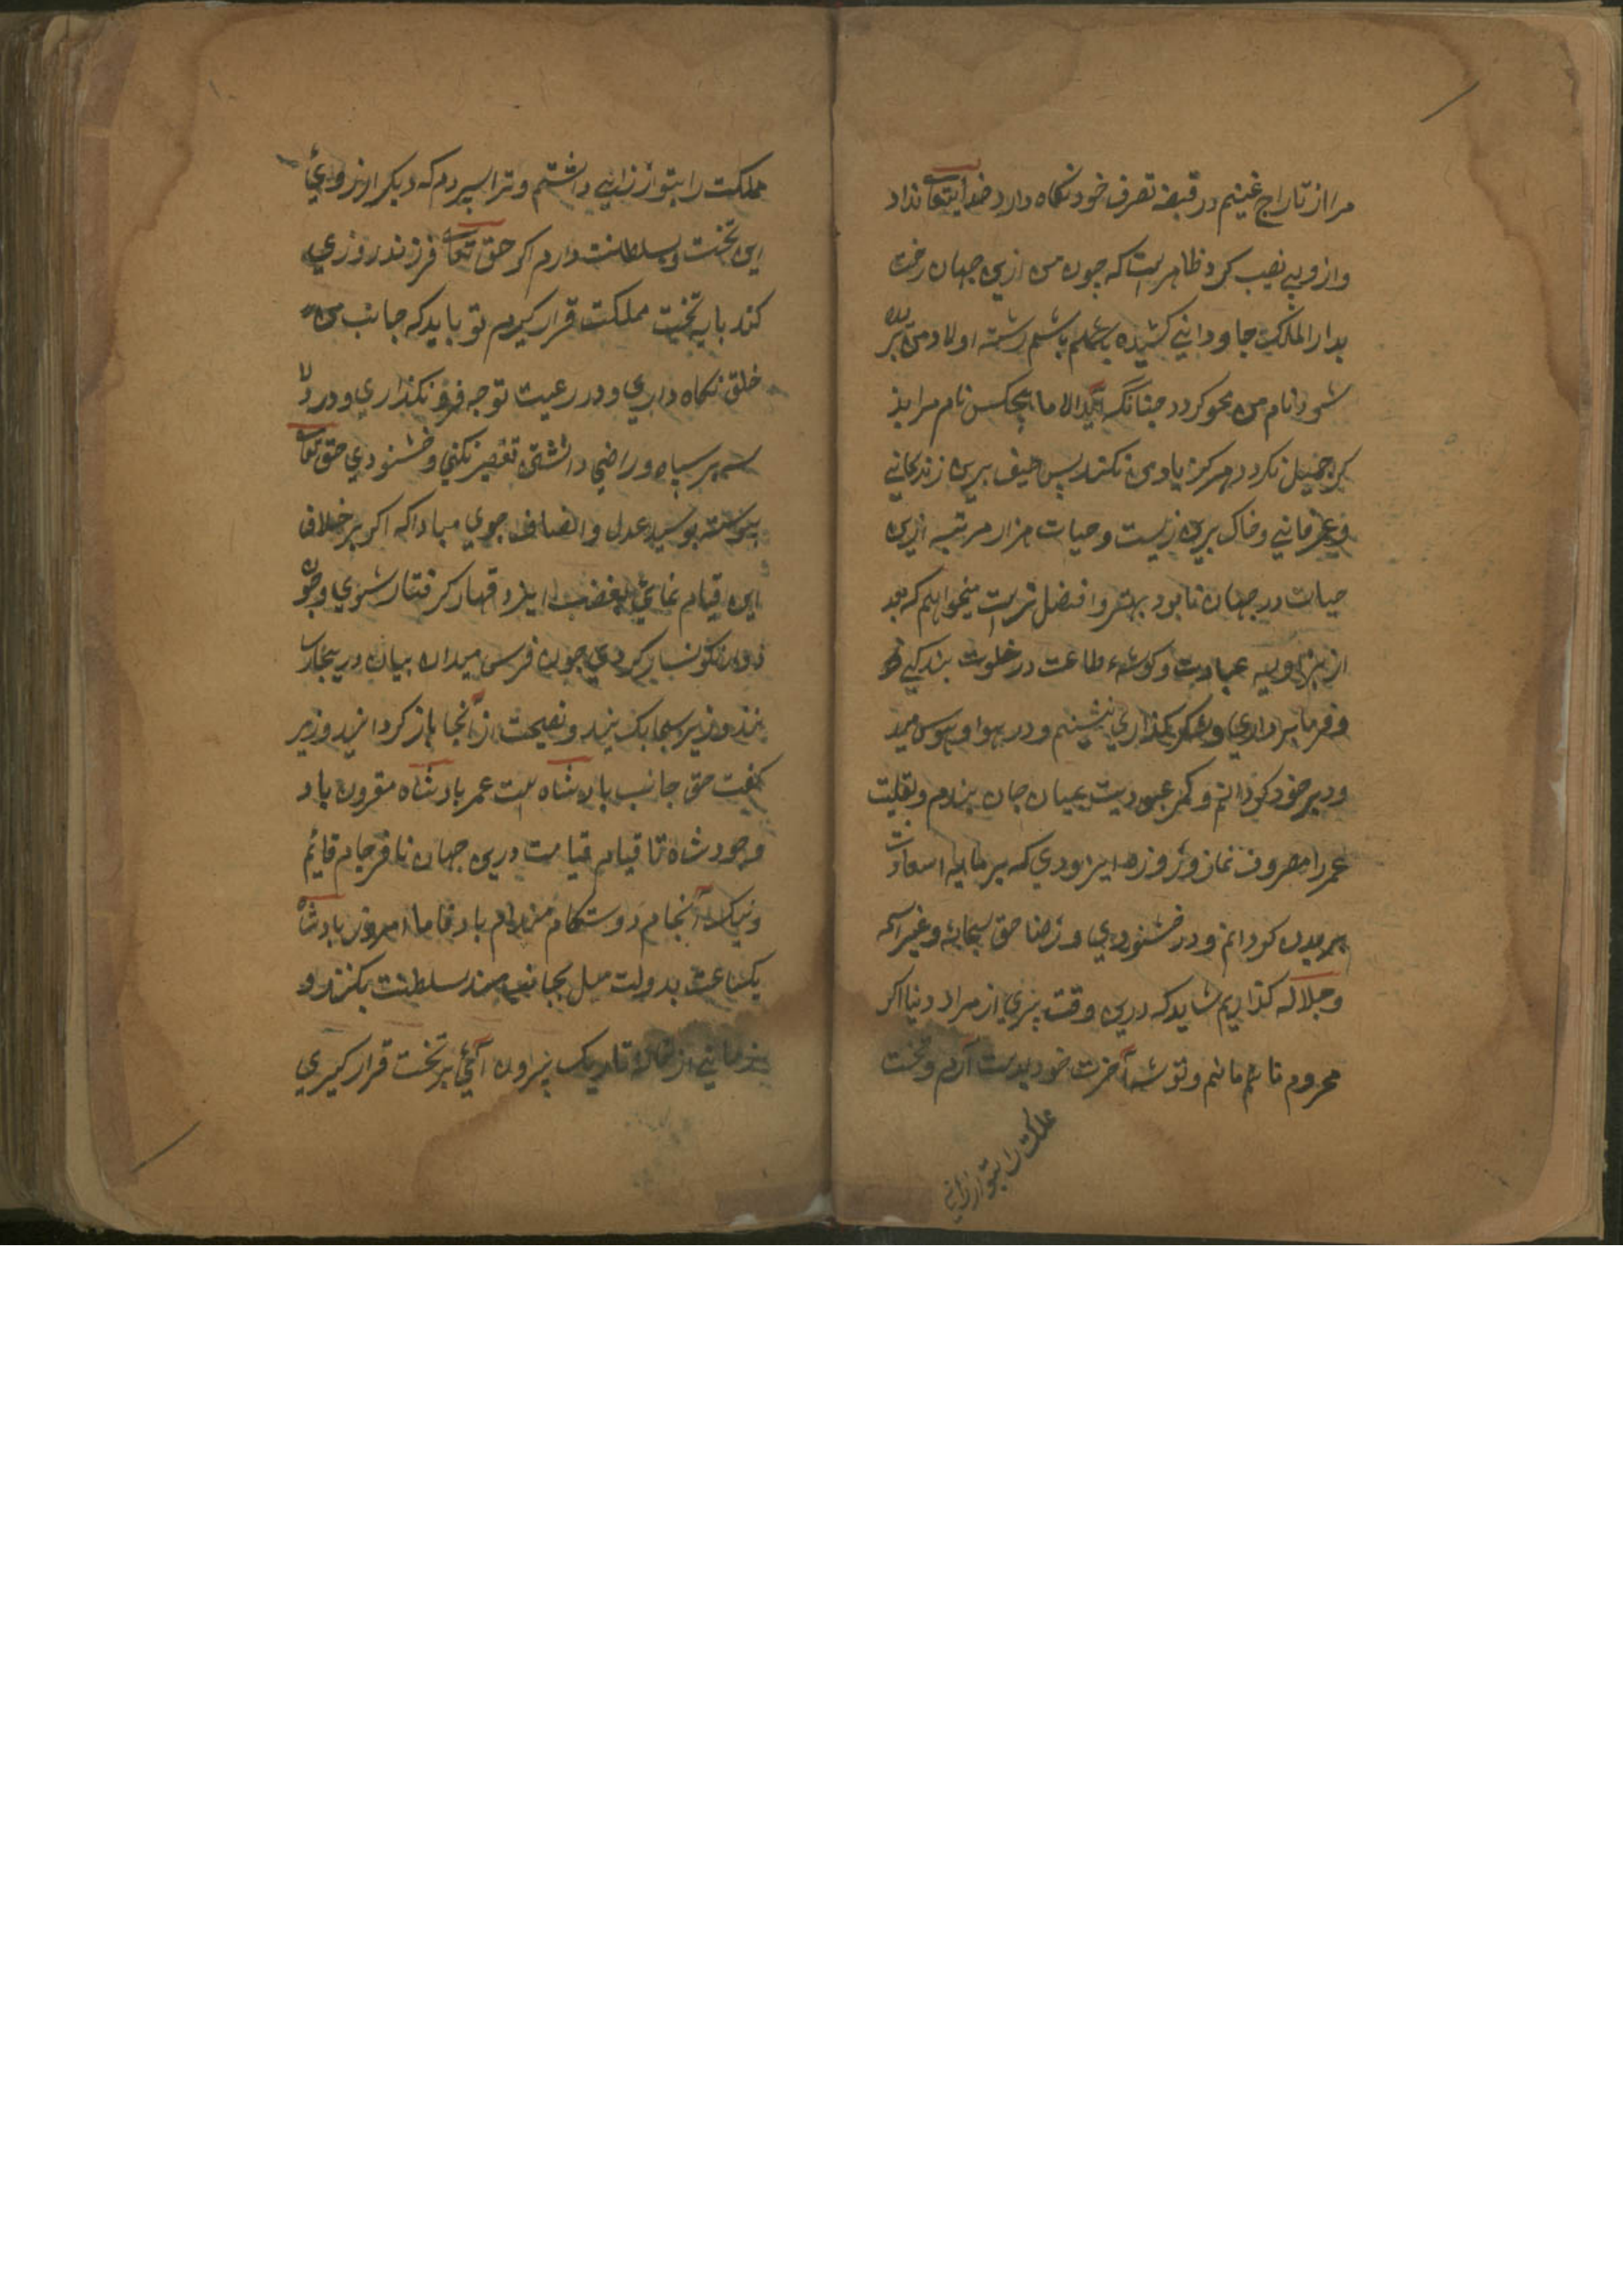 مرا از تاراج غنیم در قبضه تصرف خود نکاه دارد خدایتعا نداد
و ازو بی نصیب کرد ظاهرست که چون من ازین جهان رخت
بدار الملک جاودانی کشیده باشم رشته اولاد من بریده
شود و نام من محو کردد چنانکه ابدالاما هیچکس نام مرا بذ
کر جمیل نکردد هرکز یاد من نکند پس حیف برین زندکانی
و خاک برین زیست و حیات هزار مرتبه ازین
حیات در جهان نابود بهتر و افضل ترست میخواهم که بعد
ازین بزاویه عبادت و کوشهء طاعت در خلوت بندکی
و فرمانبرداری و شکر کذاری نشینم و در هوا و هوس
و کمر عبودیت بمیان جان بندم و بقیت
عمر را مصروف نماز و روزه ایزودی که سرمایه سعادت
کردانم و در خشنودی و رضا حق سبحانه و غیر اسمه
و جلاله کذاریم شاید که درین وقت پیری از مراد دنیا اکر
محروم مانم و توشه آخرت خود بدست آرم و تخت
مملکت را بتو ارزانی
مملکت را بتو ارزانی داشتم و ترا سپردم که دیکر
این تخت و سلطنت دارم اکر حق تعا فرزند روزی
کند بایه تخت مملکت قرار کیرم تو باید که جانب من
خلق نکاه داری و در رعیت توجه فرو نکذاری و در دلا
سه بر سپاه و راضی داشتن تقصیر نکنی و خشنودی حق تعا
پیوسته بوسیله عدل و انصاف جوی مبادا که اکر بر خلاف
این قیام نمائی بغضب ایزد قهار کرفتار شوی و چون
نکونسار کردی چون فرس میدان بیان در پنجا رسا
نند وزیر سبحا بک بند و نصیحت از آنجا باز کردانید وزیر
کفت حق جانب بادشاه ست عمر بادشاه مقرون باد
وجود شاه تا قیام قیامت درین جهان نافرجام قائم
و نیک انجام دوستکام باد فاما امروز بادشاه
یکساعت بدولت میل بجانب مسند سلطنت بکنند و
تاریک بیرون آئی بر تخت قرار کیری